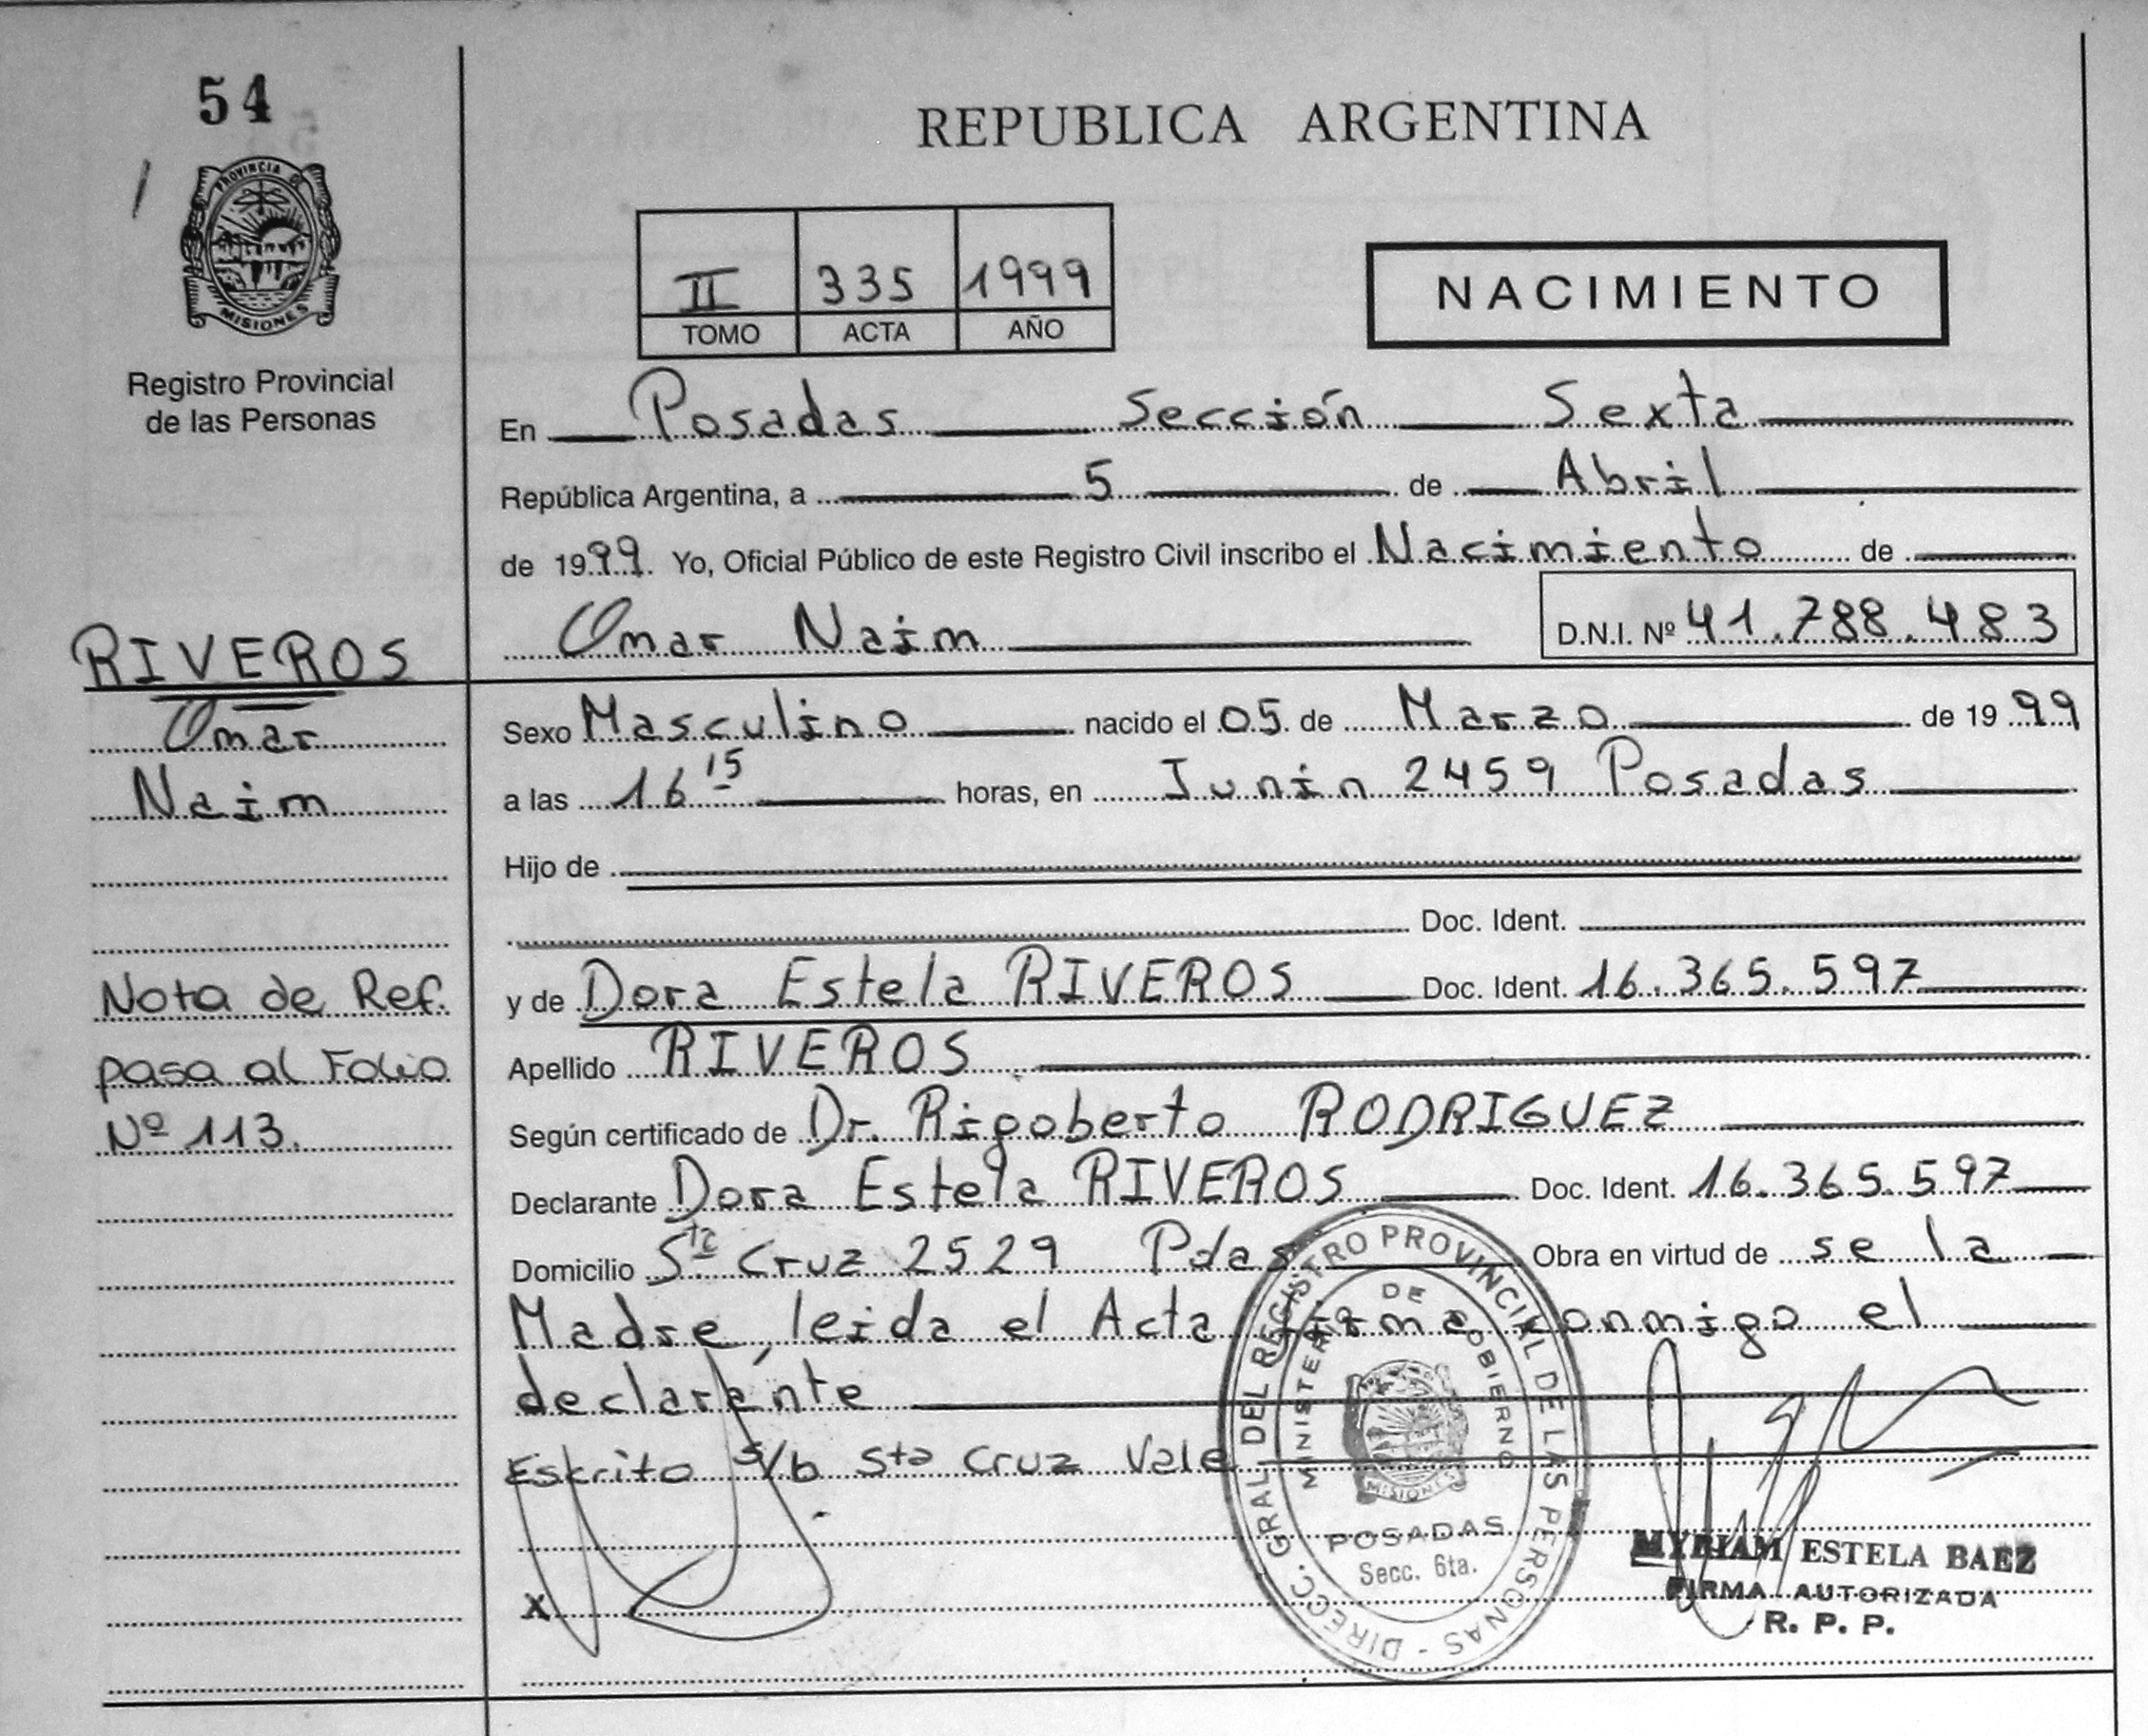 54
PROVINCIA DE
MISIONES
Registro Provincial
de las Personas
REPUBLICA ARGENTINA
II 335 1999
TOMO ACTA AÑO
NACIMIENTO
En Posadas Sección Sexta
República Argentina, a 5 de Abril
de 1999. Yo, Oficial Público de este Registro Civil inscribo el Nacimiento de
Omar Naim D.N.I. Nº 41.788.483
RIVEROS
Omar
Naim
Nota de Ref.
pasa al Folio
Nº 113.
Sexo Masculino nacido el 05 de Marzo de 1999
a las 16 15 horas, en Junin 2459 Posadas
Hijo de
Doc. Ident.
y de Dora Estela RIVEROS Doc. Ident. 16.365.597
Apellido RIVEROS
Según certificado de Dr. Rigoberto RODRIGUEZ
Declarante Dora Estela RIVEROS Doc. Ident. 16.365.597
Domicilio Sta Cruz 2529 Pdas Obra en virtud de se la
Madre, leida el Acta firma conmigo el
declarante
Escrito s/b Sta Cruz Vale
X
DIRECC. GRAL DEL REGISTRO PROVINCIAL DE LAS PERSONAS -
MINISTERIO DE GOBIERNO
MISIONES
POSADAS
Secc. 6ta.
MYRIAM ESTELA BAEZ
FIRMA AUTORIZADA
R. P. P.